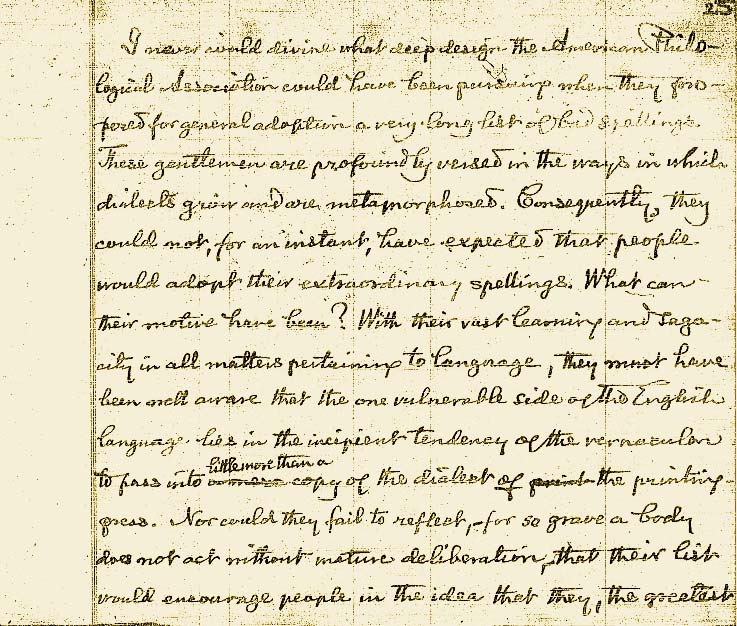 25
I never could divine what deep design the American Philo-
logical Association could have been pursuing when they pro-
posed for general adoption a very long list of bad spellings.
These gentlemen are profoundly versed in the ways in which
dialects grow and are metamorphosed. Consequently, they
could not, for an instant, have expected that people
would adopt their extraordinary spellings. What can
their motive have been? With their vast learning and saga-
city in all matters pertaining to language, they must have
been well aware that the one vulnerable side of the English
language lies in the incipient tendency of the vernacular
little more than a
to pass into copy of the dialect of print the printing-
press. Nor could they fail to reflect, – for so grave a body
does not act without mature deliberation, that their list
would encourage people in the idea that they, the greatest